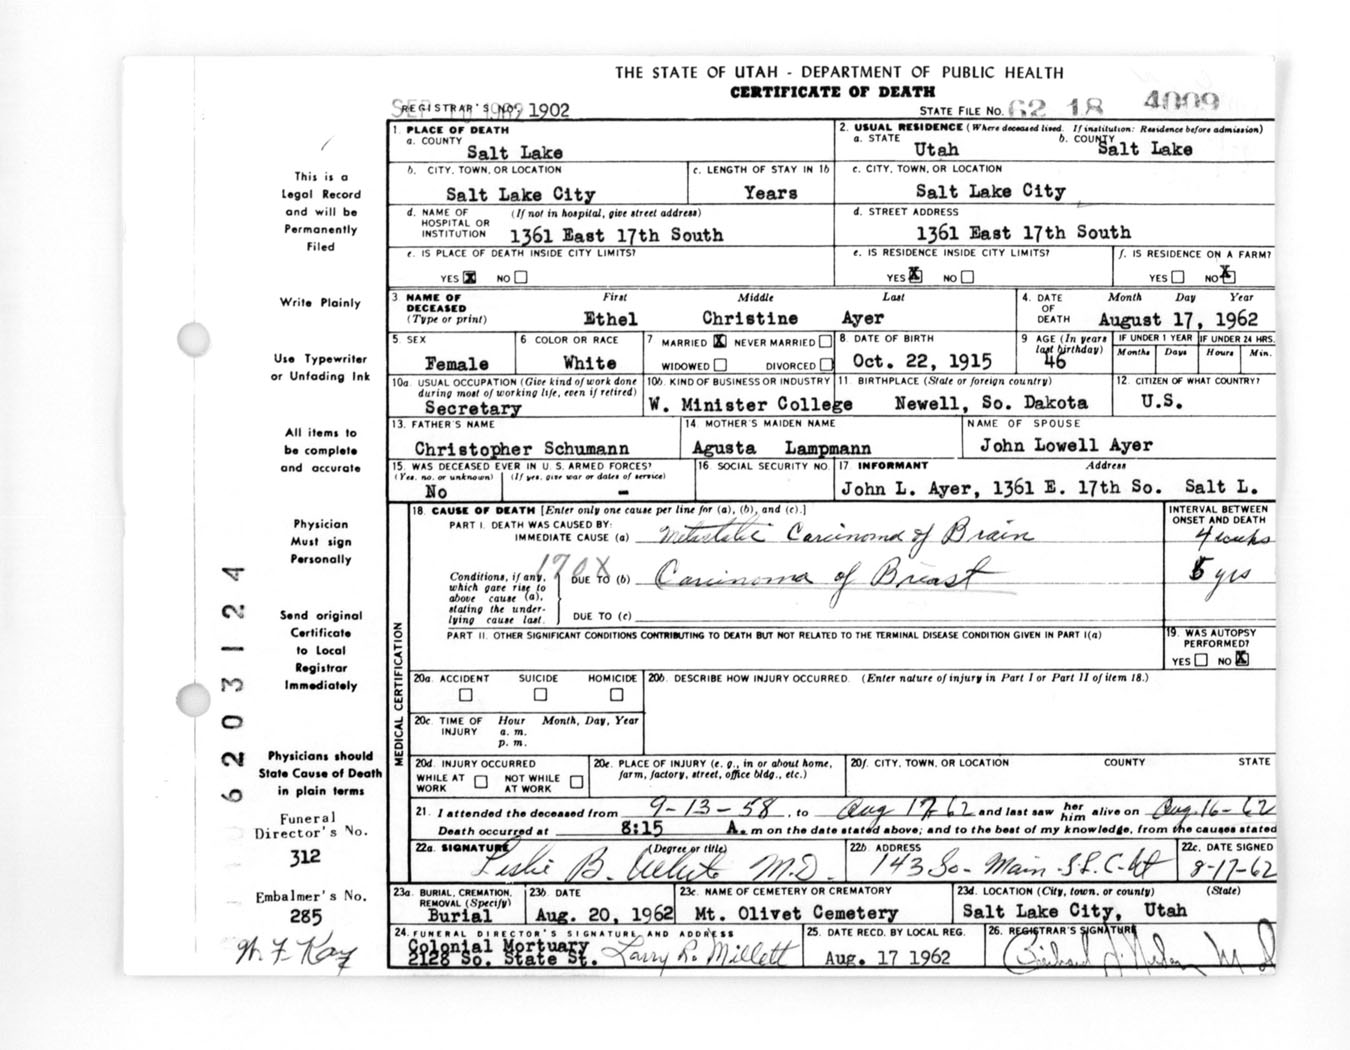 THE STATE OF UTAH - DEPARTMENT OF PUBLIC HEALTH
CERTIFICATE OF DEATH
REGISTRAR'S NO. 1902
STATE FILE NO. 62 18 4009
This is a
Legal Record
and will be
Permanently
Filed
Write Plainly
Use Typewriter
or Unfading Ink
All items to
be complete
and accurate
Physician
Must sign
Personally
Send original
Certificate
to Local
Registrar
Immediately
Physicians should
State Cause of Death
in plain terms
Funeral
Director's No.
312
Embalmer's No.
285
W. F. Kay
6203124
1. PLACE OF DEATH
a. COUNTY
Salt Lake
2. USUAL RESIDENCE (Where deceased lived. If institution: Residence before admission)
a. STATE b. COUNTY
Utah Salt Lake
b. CITY, TOWN, OR LOCATION
Salt Lake City
c. LENGTH OF STAY IN 1b
Years
c. CITY, TOWN, OR LOCATION
Salt Lake City
d. NAME OF HOSPITAL OR INSTITUTION (If not in hospital, give street address)
1361 East 17th South
d. STREET ADDRESS
1361 East 17th South
e. IS PLACE OF DEATH INSIDE CITY LIMITS?
YES X NO
e. IS RESIDENCE INSIDE CITY LIMITS?
YES X NO
f. IS RESIDENCE ON A FARM?
YES NO X
3. NAME OF DECEASED (Type or print) First Middle Last
Ethel Christine Ayer
4. DATE OF DEATH Month Day Year
August 17, 1962
5. SEX
Female
6 COLOR OR RACE
White
7 MARRIED X NEVER MARRIED
WIDOWED DIVORCED
8. DATE OF BIRTH
Oct. 22, 1915
9 AGE (In years last birthday)
46
IF UNDER 1 YEAR IF UNDER 24 HRS.
Months Days Hours Min.
10a. USUAL OCCUPATION (Give kind of work done during most of working life, even if retired)
Secretary
10b. KIND OF BUSINESS OR INDUSTRY
W. Minister College
11. BIRTHPLACE (State or foreign country)
Newell, So. Dakota
12. CITIZEN OF WHAT COUNTRY?
U.S.
13. FATHER'S NAME
Christopher Schumann
14. MOTHER'S MAIDEN NAME
Agusta Lampmann
NAME OF SPOUSE
John Lowell Ayer
15. WAS DECEASED EVER IN U. S. ARMED FORCES?
(Yes, no, or unknown) (If yes, give war or dates of service)
No -
16. SOCIAL SECURITY NO.
17. INFORMANT Address
John L. Ayer, 1361 E. 17th So. Salt L.
MEDICAL CERTIFICATION
18. CAUSE OF DEATH [Enter only one cause per line for (a), (b), and (c).]
INTERVAL BETWEEN ONSET AND DEATH
PART I. DEATH WAS CAUSED BY:
IMMEDIATE CAUSE (a) Metastatic Carcinoma of Brain 4 weeks
170X
Conditions, if any, which gave rise to above cause (a), stating the underlying cause last.
DUE TO (b) Carcinoma of Breast 5 yrs
DUE TO (c)
PART II. OTHER SIGNIFICANT CONDITIONS CONTRIBUTING TO DEATH BUT NOT RELATED TO THE TERMINAL DISEASE CONDITION GIVEN IN PART I(a)
19. WAS AUTOPSY PERFORMED?
YES NO X
20a. ACCIDENT SUICIDE HOMICIDE
20b. DESCRIBE HOW INJURY OCCURRED. (Enter nature of injury in Part I or Part II of item 18.)
20c. TIME OF INJURY Hour Month, Day, Year
a. m.
p. m.
20d. INJURY OCCURRED
WHILE AT WORK NOT WHILE AT WORK
20e. PLACE OF INJURY (e. g., in or about home, farm, factory, street, office bldg., etc.)
20f. CITY, TOWN, OR LOCATION COUNTY STATE
21. I attended the deceased from 9-13-58, to Aug 17-62 and last saw her him alive on Aug. 16-62
Death occurred at 8:15 A. m on the date stated above; and to the best of my knowledge, from the causes stated
22a. SIGNATURE (Degree or title)
Leslie B. White M.D.
22b. ADDRESS
143 So- Main- S.L.C. Ut
22c. DATE SIGNED
8-17-62
23a. BURIAL, CREMATION, REMOVAL (Specify)
Burial
23b. DATE
Aug. 20, 1962
23c. NAME OF CEMETERY OR CREMATORY
Mt. Olivet Cemetery
23d. LOCATION (City, town, or county) (State)
Salt Lake City, Utah
24. FUNERAL DIRECTOR'S SIGNATURE AND ADDRESS
Colonial Mortuary
2128 So. State St. Larry R. Millett
25. DATE RECD. BY LOCAL REG.
Aug. 17 1962
26. REGISTRAR'S SIGNATURE